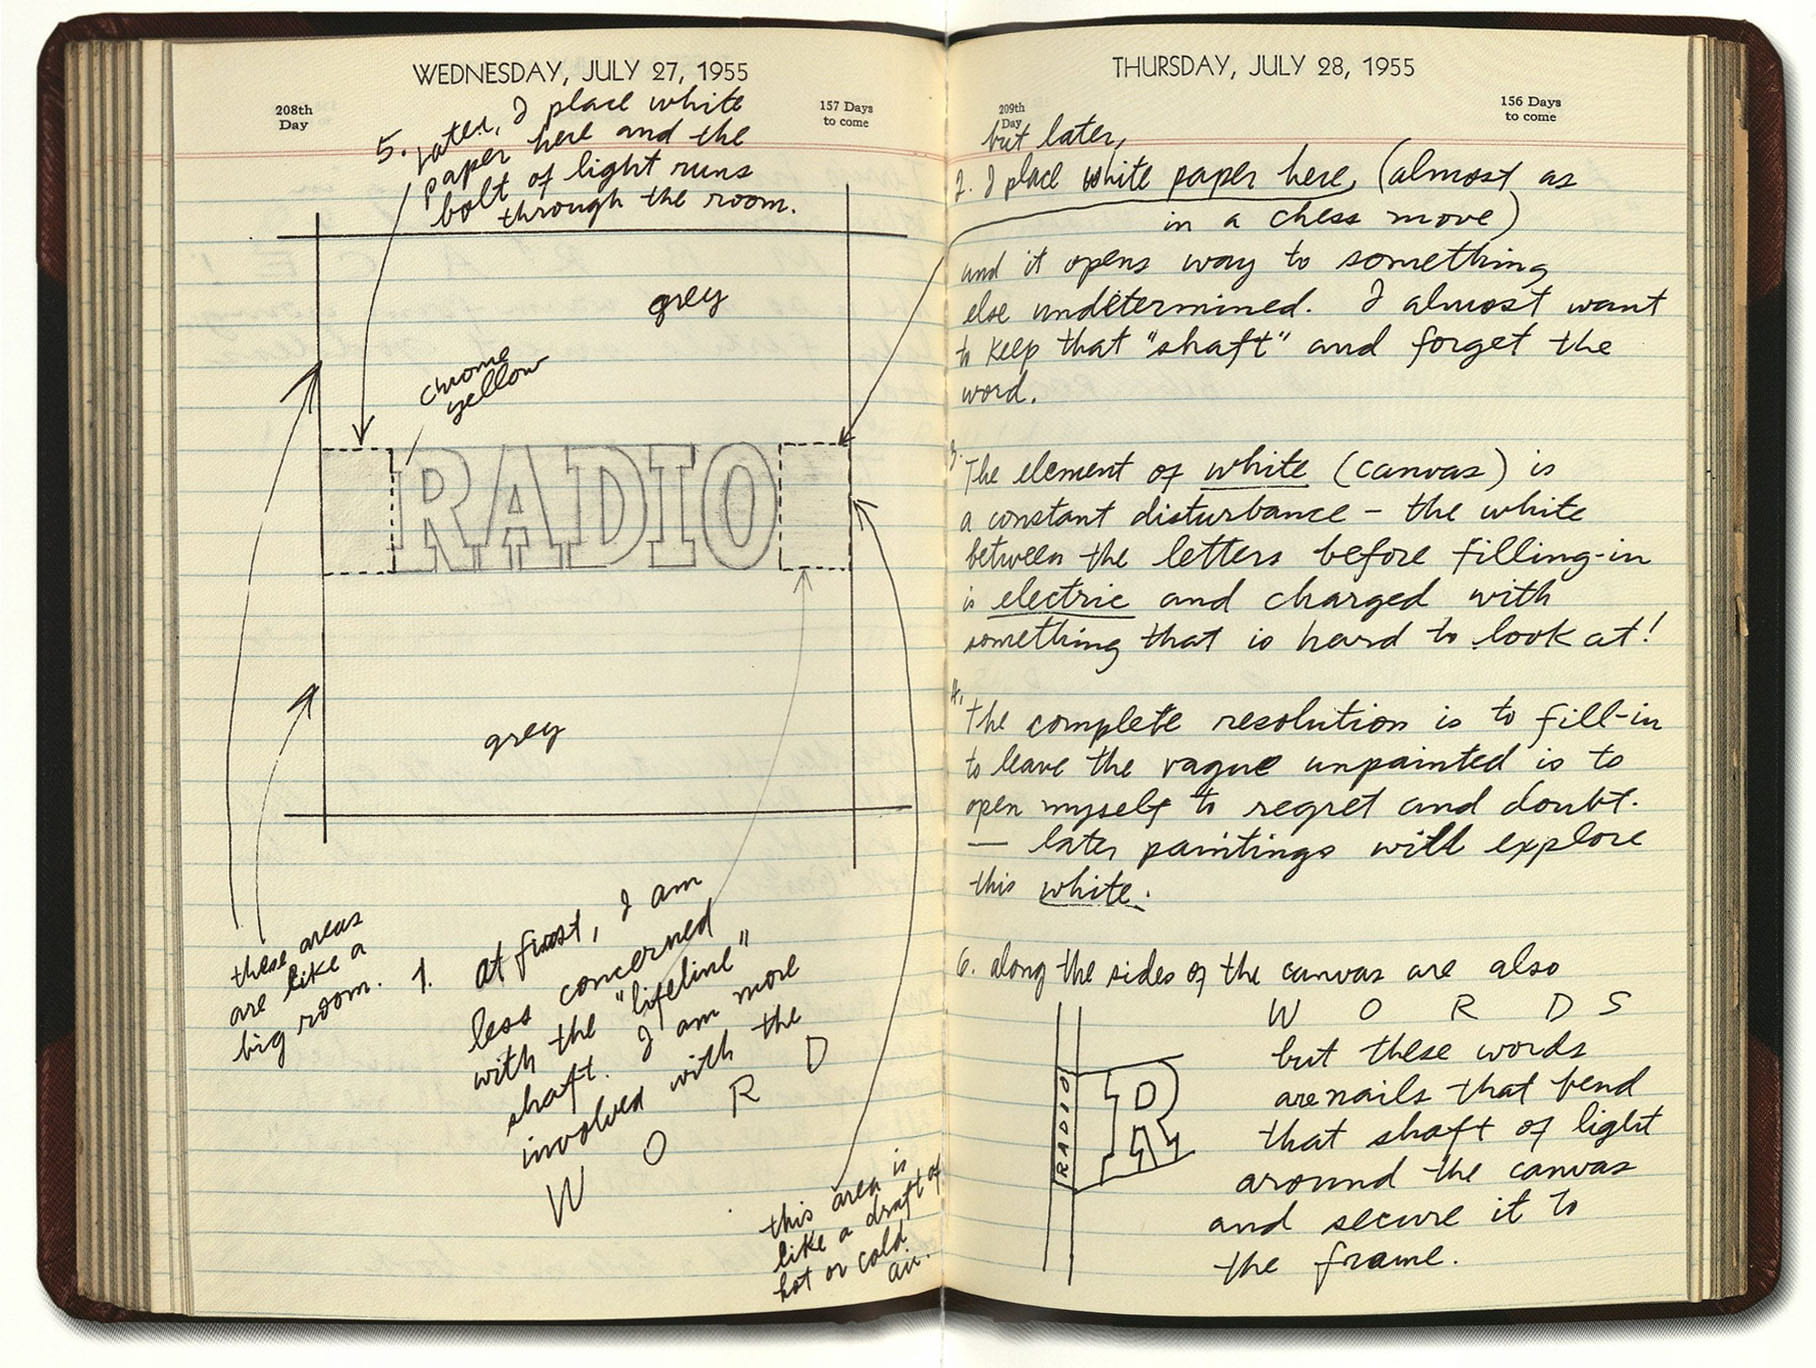 WEDNESDAY, JULY 27, 1955
208th
Day
157 Days
to come
5. later, I place white
paper here and the
bolt of light runs
through the room.
grey
chrome
yellow
RADIO
grey
these areas
are like a
big room.
1. at first, I am
less concerned
with the "lifeline"
shaft. I am more
involved with the
W O R D
this area is
like a draft of
hot or cold
air.
THURSDAY, JULY 28, 1955
209th
Day
156 Days
to come
but later,
2. I place white paper here, (almost as
in a chess move)
and it opens way to something
else undetermined. I almost want
to keep that "shaft" and forget the
word.
3. The element of white (canvas) is
a constant disturbance - the white
between the letters before filling-in
is electric and charged with
something that is hard to look at!
4. The complete resolution is to fill-in
to leave the vague unpainted is to
open myself to regret and doubt.
— later paintings will explore
this white.
6. along the sides of the canvas are also
W O R D S
but these words
are nails that bend
that shaft of light
around the canvas
and secure it to
the frame.
RADIO
R